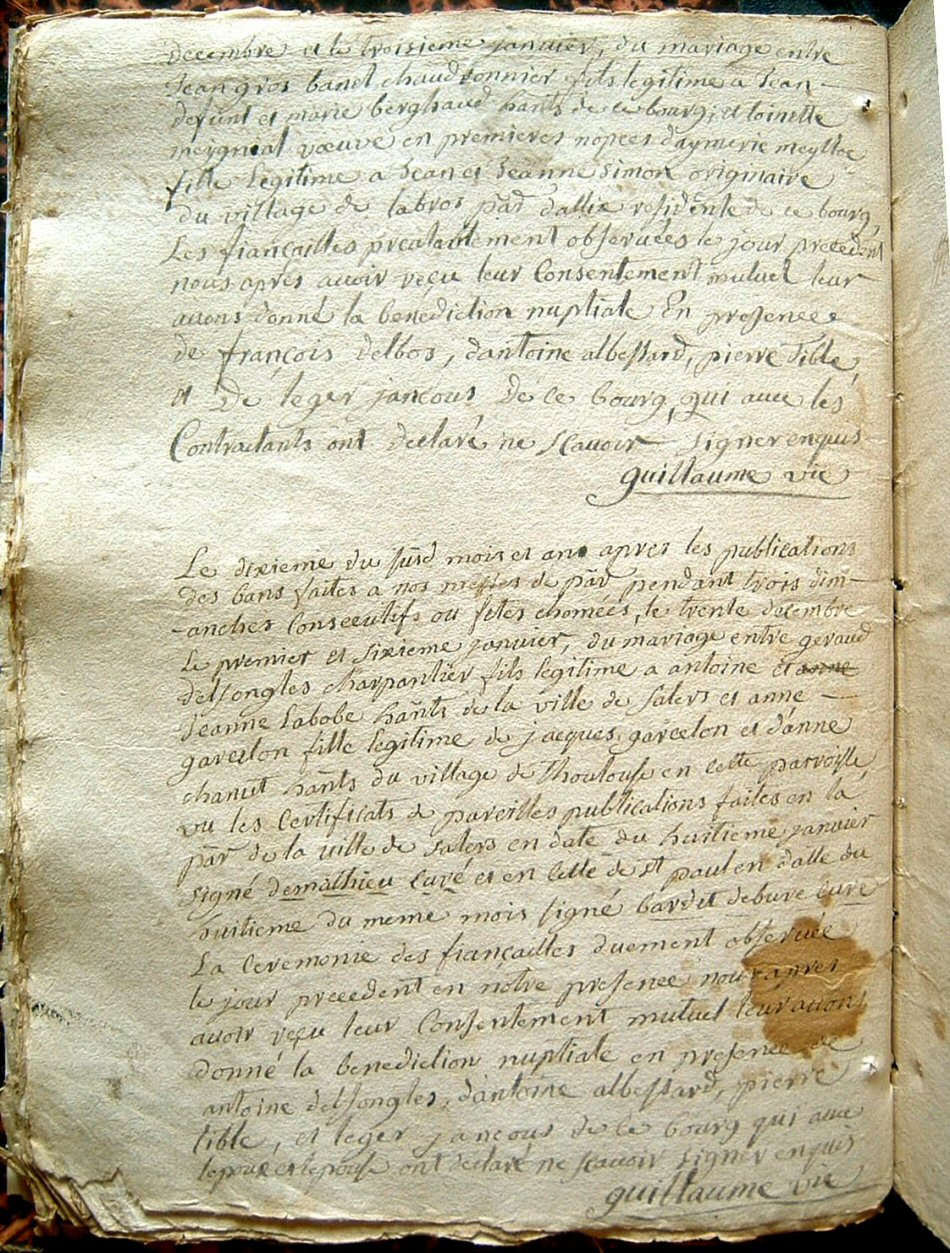 decembre et le troisieme janvier, du mariage entre
Jean gros banel chaudronnier fils legitime a Jean
defunt et marie berghaud hants de ce bourg, et toinette
mergnial vœuve en premieres nopces d'aymerie meyllac
fille Legitime a Jean et Jeanne Simon originaire
du village de labros par d'allix residente de ce bourg,
Les fiançailles prealablement observées le jour precedent
nous après avoir reçu leur Consentement mutuel leur
avons donné la benediction nuptiale En presence
de françois delbos, d'antoine albessard, pierre tible,
et De leger jancous De ce bourg, qui avec les
Contractants ont declaré ne scavoir signer enquis
guillaume vie
Le dixieme du susd mois et an apres les publications
des bans faites a nos messes de par pendant trois dim-
-anches Consecutifs ou fetes chomées, le trente decembre
Le premier et sixieme janvier, du mariage entre geraud
delsongles charpantier fils legitime a antoine et anne
Jeanne Labobe hants de la ville de Salers et anne
garcelon fille legitime de jacques garcelon et d'anne
chanut hants du village de Thoulouse en cette parroisse
vu les Certificats de pareilles publications faites en la
par de la ville de Salers en date du huitieme janvier
signé demathieu Curé et en Celle de st paul en datte du
huitieme du meme mois signé bardet debure Curé
La Ceremonie des françailles duement observée
le jour precedent en notre presence nous apres
avoir reçu leur Consentement mutuel leur avons
donné la benediction nuptiale en presence de
antoine delsongles, d'antoine albessard, pierre
tible, et leger jancous de ce bourg qui avec
lepoux et lepouse ont declaré ne scavoir signer enquis
guillaume vie